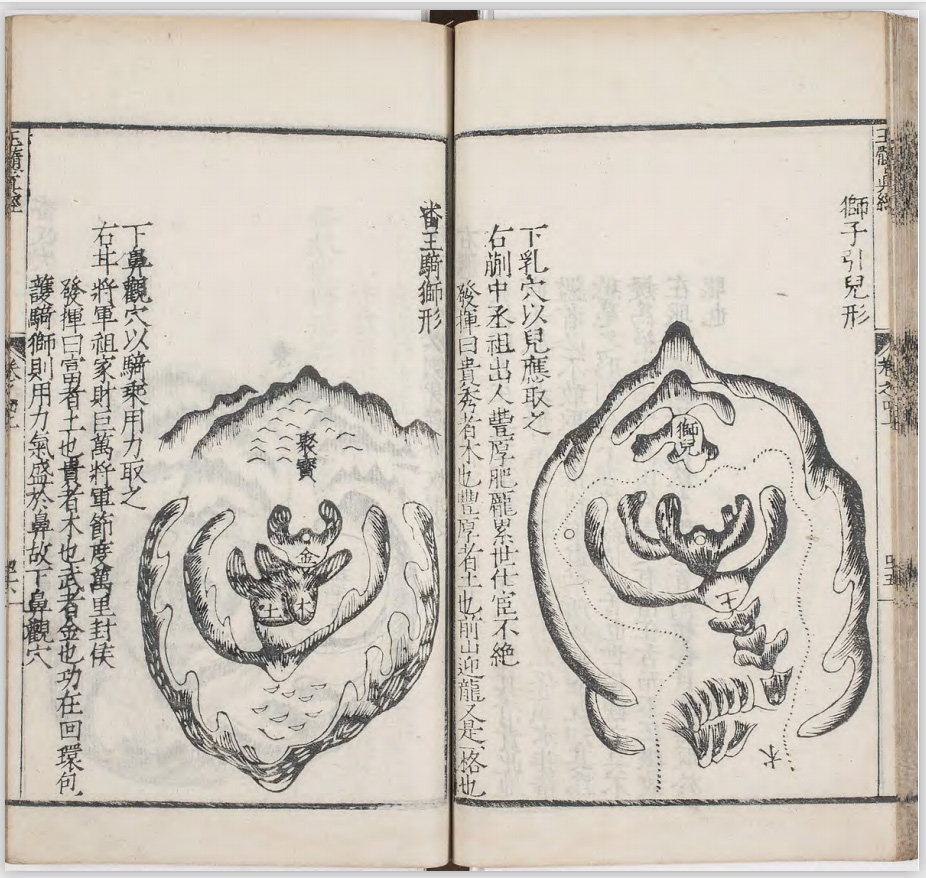 玉髓真經
卷之四
四五
獅子引兒形
獅兒
土
木
下乳穴以兒應取之
右蒯中丞祖出人豊厚肥龍累世仕宦不絶
發揮曰貴秀者木也豐厚者土也前山迎龍又是一格也
畨王騎獅形
聚寶
金
木
土
下鼻觀穴以騎乘用力取之
右幵將軍祖家財巨萬將軍節度萬里封侯
發揮曰富者土也貴者木也武者金也功在回環包
護騎獅則用力氣盛於鼻故下鼻觀穴
玉髓真經
卷
四六